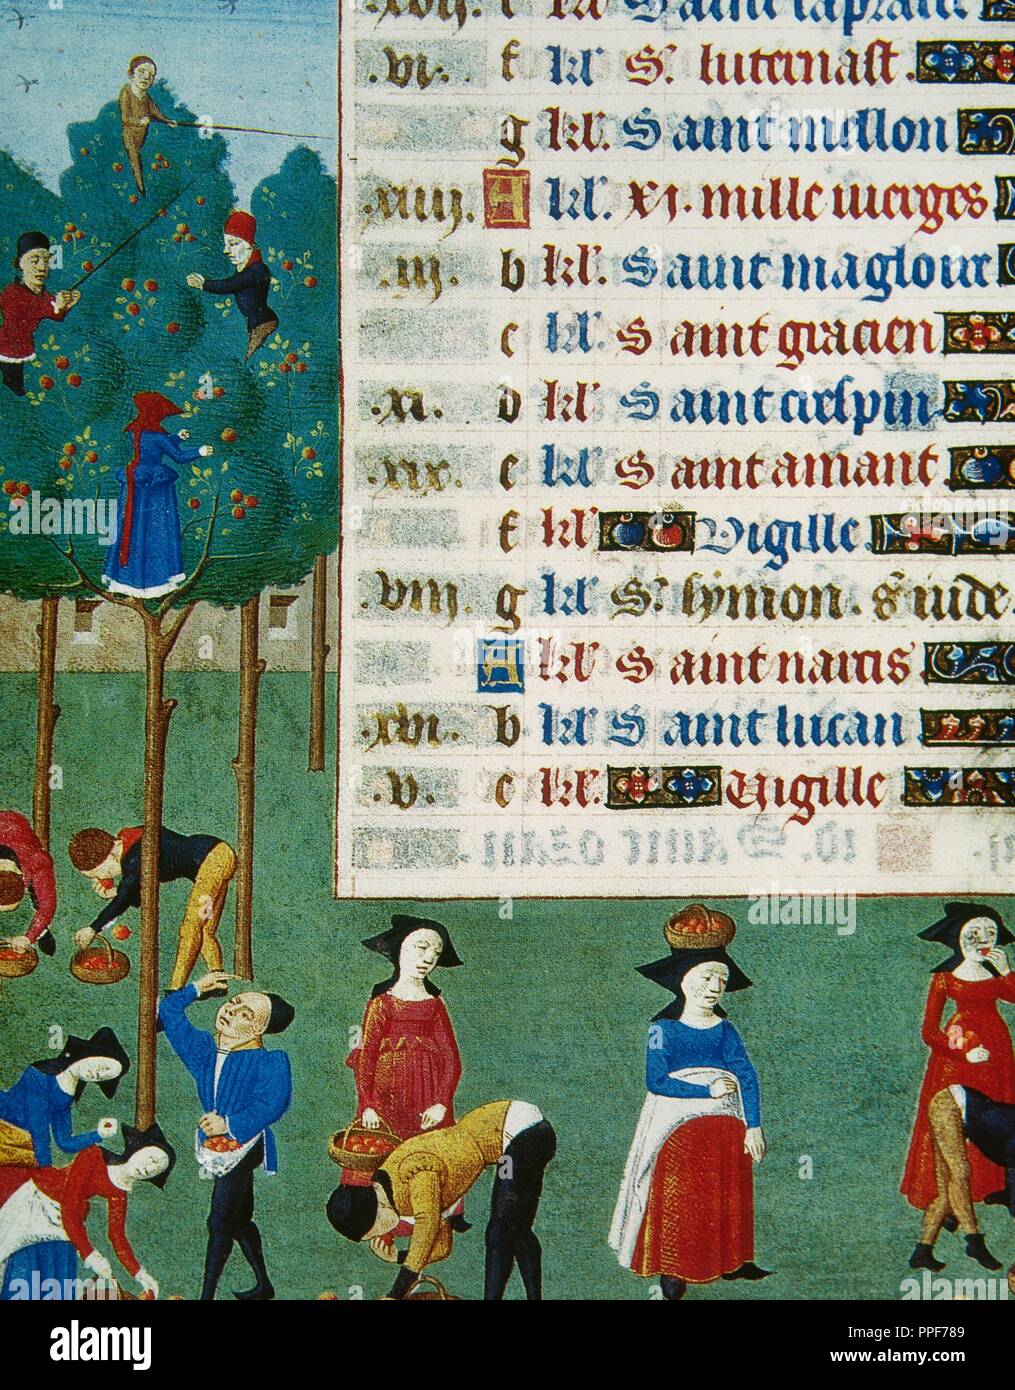 .xviij. e kl' Saint caprasie
.vi. f kl' St. luternast.
g kl'. Saint mellon
.xiiij. A kl'. xj. mille vierges
.iij. b kl'. Saint magloire
c kl'. Saint gracien
.xi. d kl' Saint crespin
.xix. e kl' Saint amant.
f kl' Vigille
.viij. g kl' St. symon. St iude.
A kl' Saint narcis
.xvi. b kl' Saint lucan
.v. c kl'. Vigille
alamy
Image ID: PPF789
www.alamy.com